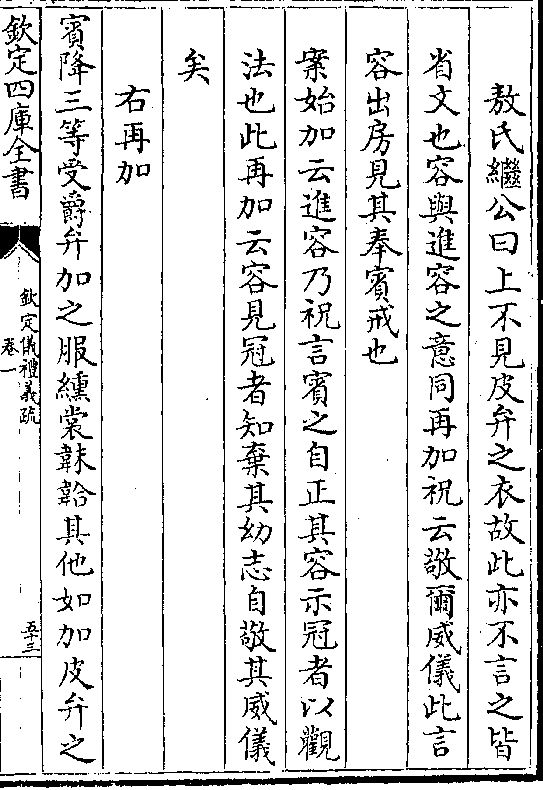 敖氏繼公曰上不見皮弁之衣故此亦不言之皆
省文也容與進容之意同再加祝云敬爾威儀此言
容出房見其奉賓戒也
案始加云進容乃祝言賓之自正其容示冠者以觀
法也此再加云容見冠者知棄其幼志自敬其威儀
矣
右再加
賓降三等受爵弁加之服纁裳韎韐其他如加皮弁之
欽定四庫全書
欽定儀禮義疏
卷一
五十三